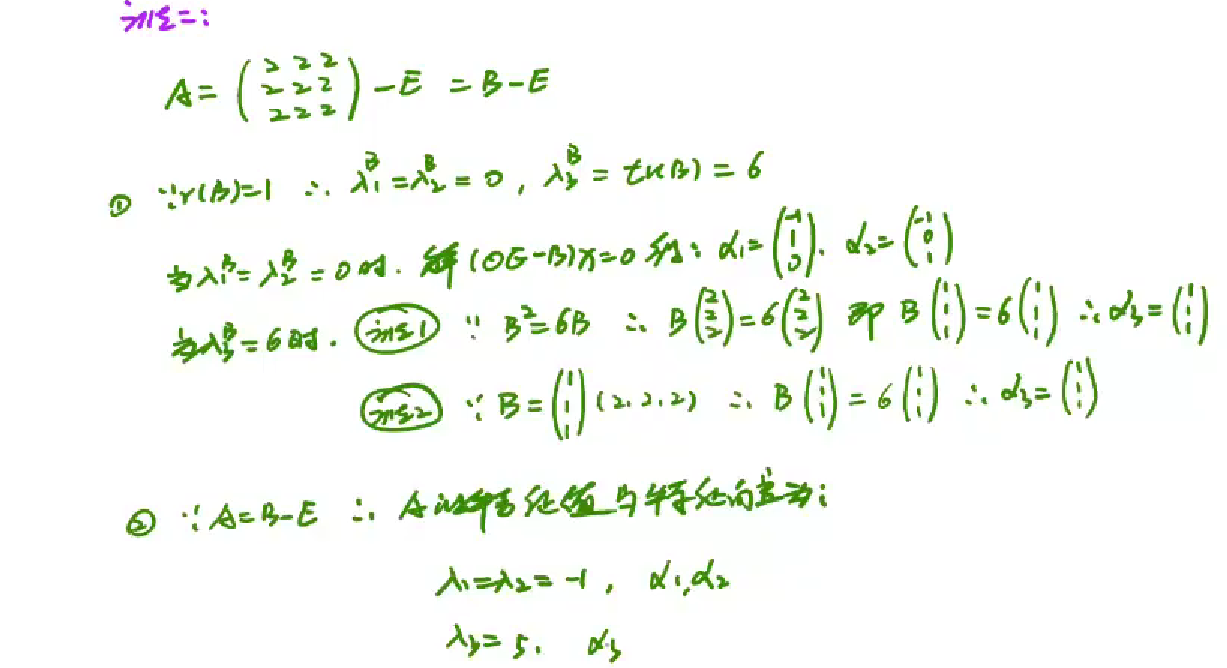 法二:
A = (2 2 2
2 2 2
2 2 2) - E = B - E
① ∵ r(B)=1 ∴ λ₁ᴮ=λ₂ᴮ=0, λ₃ᴮ=tr(B)=6
当λ₁ᴮ=λ₂ᴮ=0时. 解(0E-B)x=0得: α₁=(-1 1 0). α₂=(-1 0 1)
当λ₃ᴮ=6时. 法1 ∵ B²=6B ∴ B(2 2 2)=6(2 2 2) 即 B(1 1 1)=6(1 1 1) ∴ α₃=(1 1 1)
法2 ∵ B=(1 1 1)(2.2.2) ∴ B(1 1 1)=6(1 1 1) ∴ α₃=(1 1 1)
② ∵ A=B-E ∴ A的特征值与特征向量为:
λ₁=λ₂=-1, α₁,α₂
λ₃=5. α₃